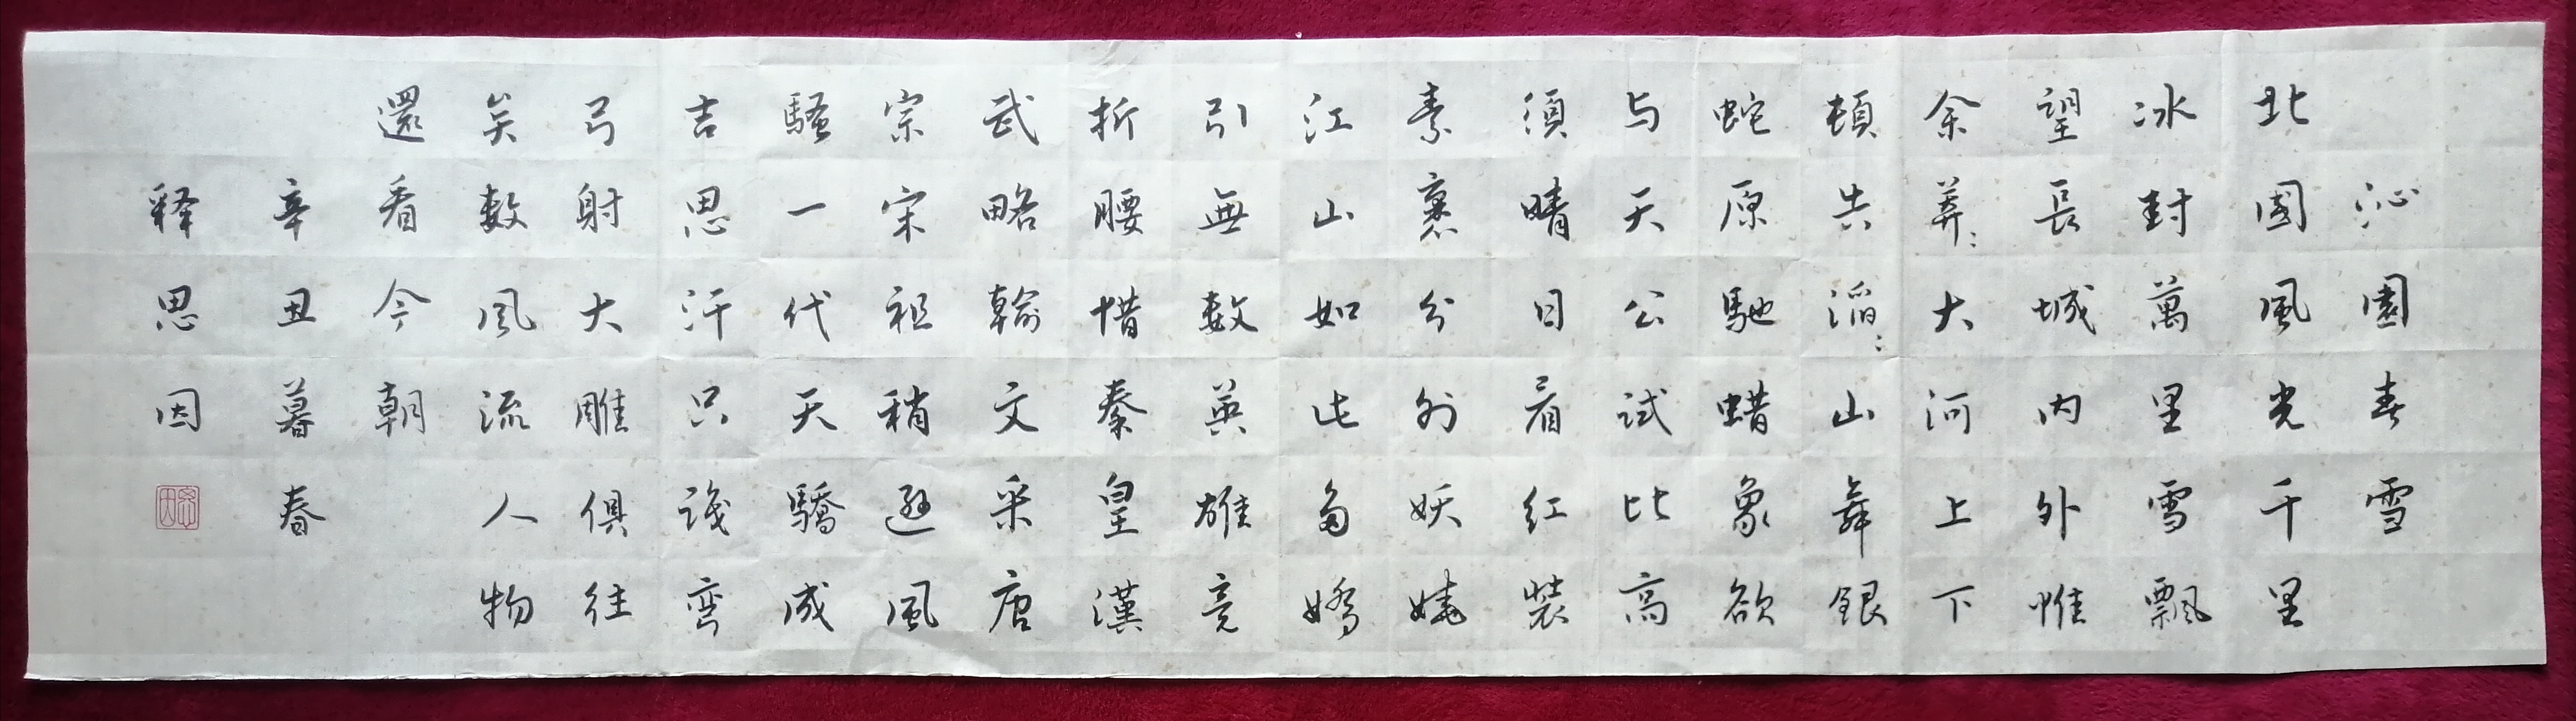 沁園春雪
北國風光千里
冰封萬里雪飄
望長城内外惟
余莽〻大河上下
頓失滔〻山舞銀
蛇原馳蜡象欲
与天公試比高
須晴日看紅裝
素裹分外妖嬈
江山如此多嬌
引無數英雄竞
折腰惜秦皇漢
武略輸文采唐
宗宋祖稍遜風
騷一代天驕成
吉思汗只識彎
弓射大雕俱往
矣數風流人物
還看今朝
辛丑暮春
释思因
思因